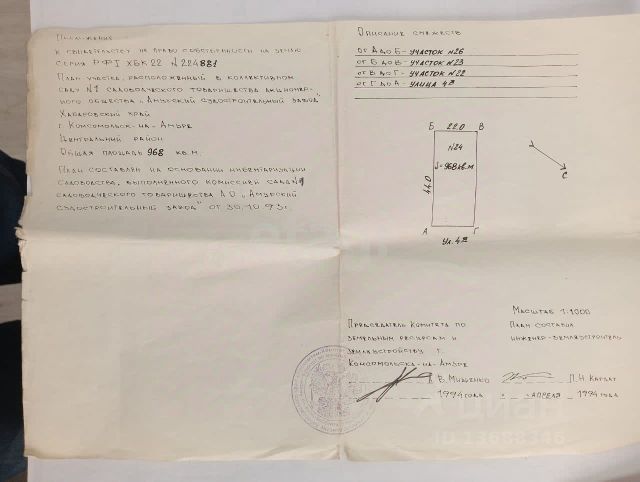 Приложение
к свидетельству на право собственности на землю
серия РФI ХБК 22 № 224881
План участка, расположенный в коллективном
саду №1 садоводческого товарищества акционер-
ного общества „Амурский судостроительный завод"
Хабаровский край
г. Комсомольск-на-Амуре
Центральный район
Общая площадь 968 кв.м.
План составлен на основании инвентаризации
садоводства, выполненного комиссией сада №1
садоводческого товарищества А.О. „Амурский
судостроительный завод" от 30.10.93г.
Описание смежеств
от А до Б - участок №26
от Б до В - участок №23
от В до Г - участок №22
от Г до А - улица 4я
Б 22.0 В
№24
S=968 кв.м
44.0
А Г
Ул. 4я
С
Масштаб 1:1000
Председатель комитета по
земельным ресурсам и
землеустройству г.
Комсомольска-на-Амуре
В. Мищенко
1994 года
План составил
инженер-землеустроитель
1994 года
апреля
циан
ID 13688346